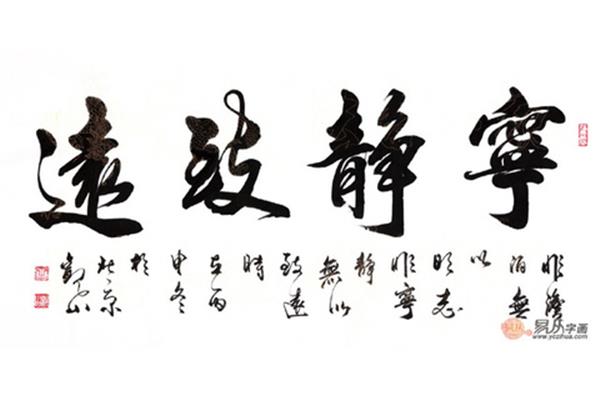 寧靜致遠
非澹
泊無
以
明志
非寧
靜
無以
致遠
時
在丙
申冬
於
北京
易从字画
www.yczhua.com